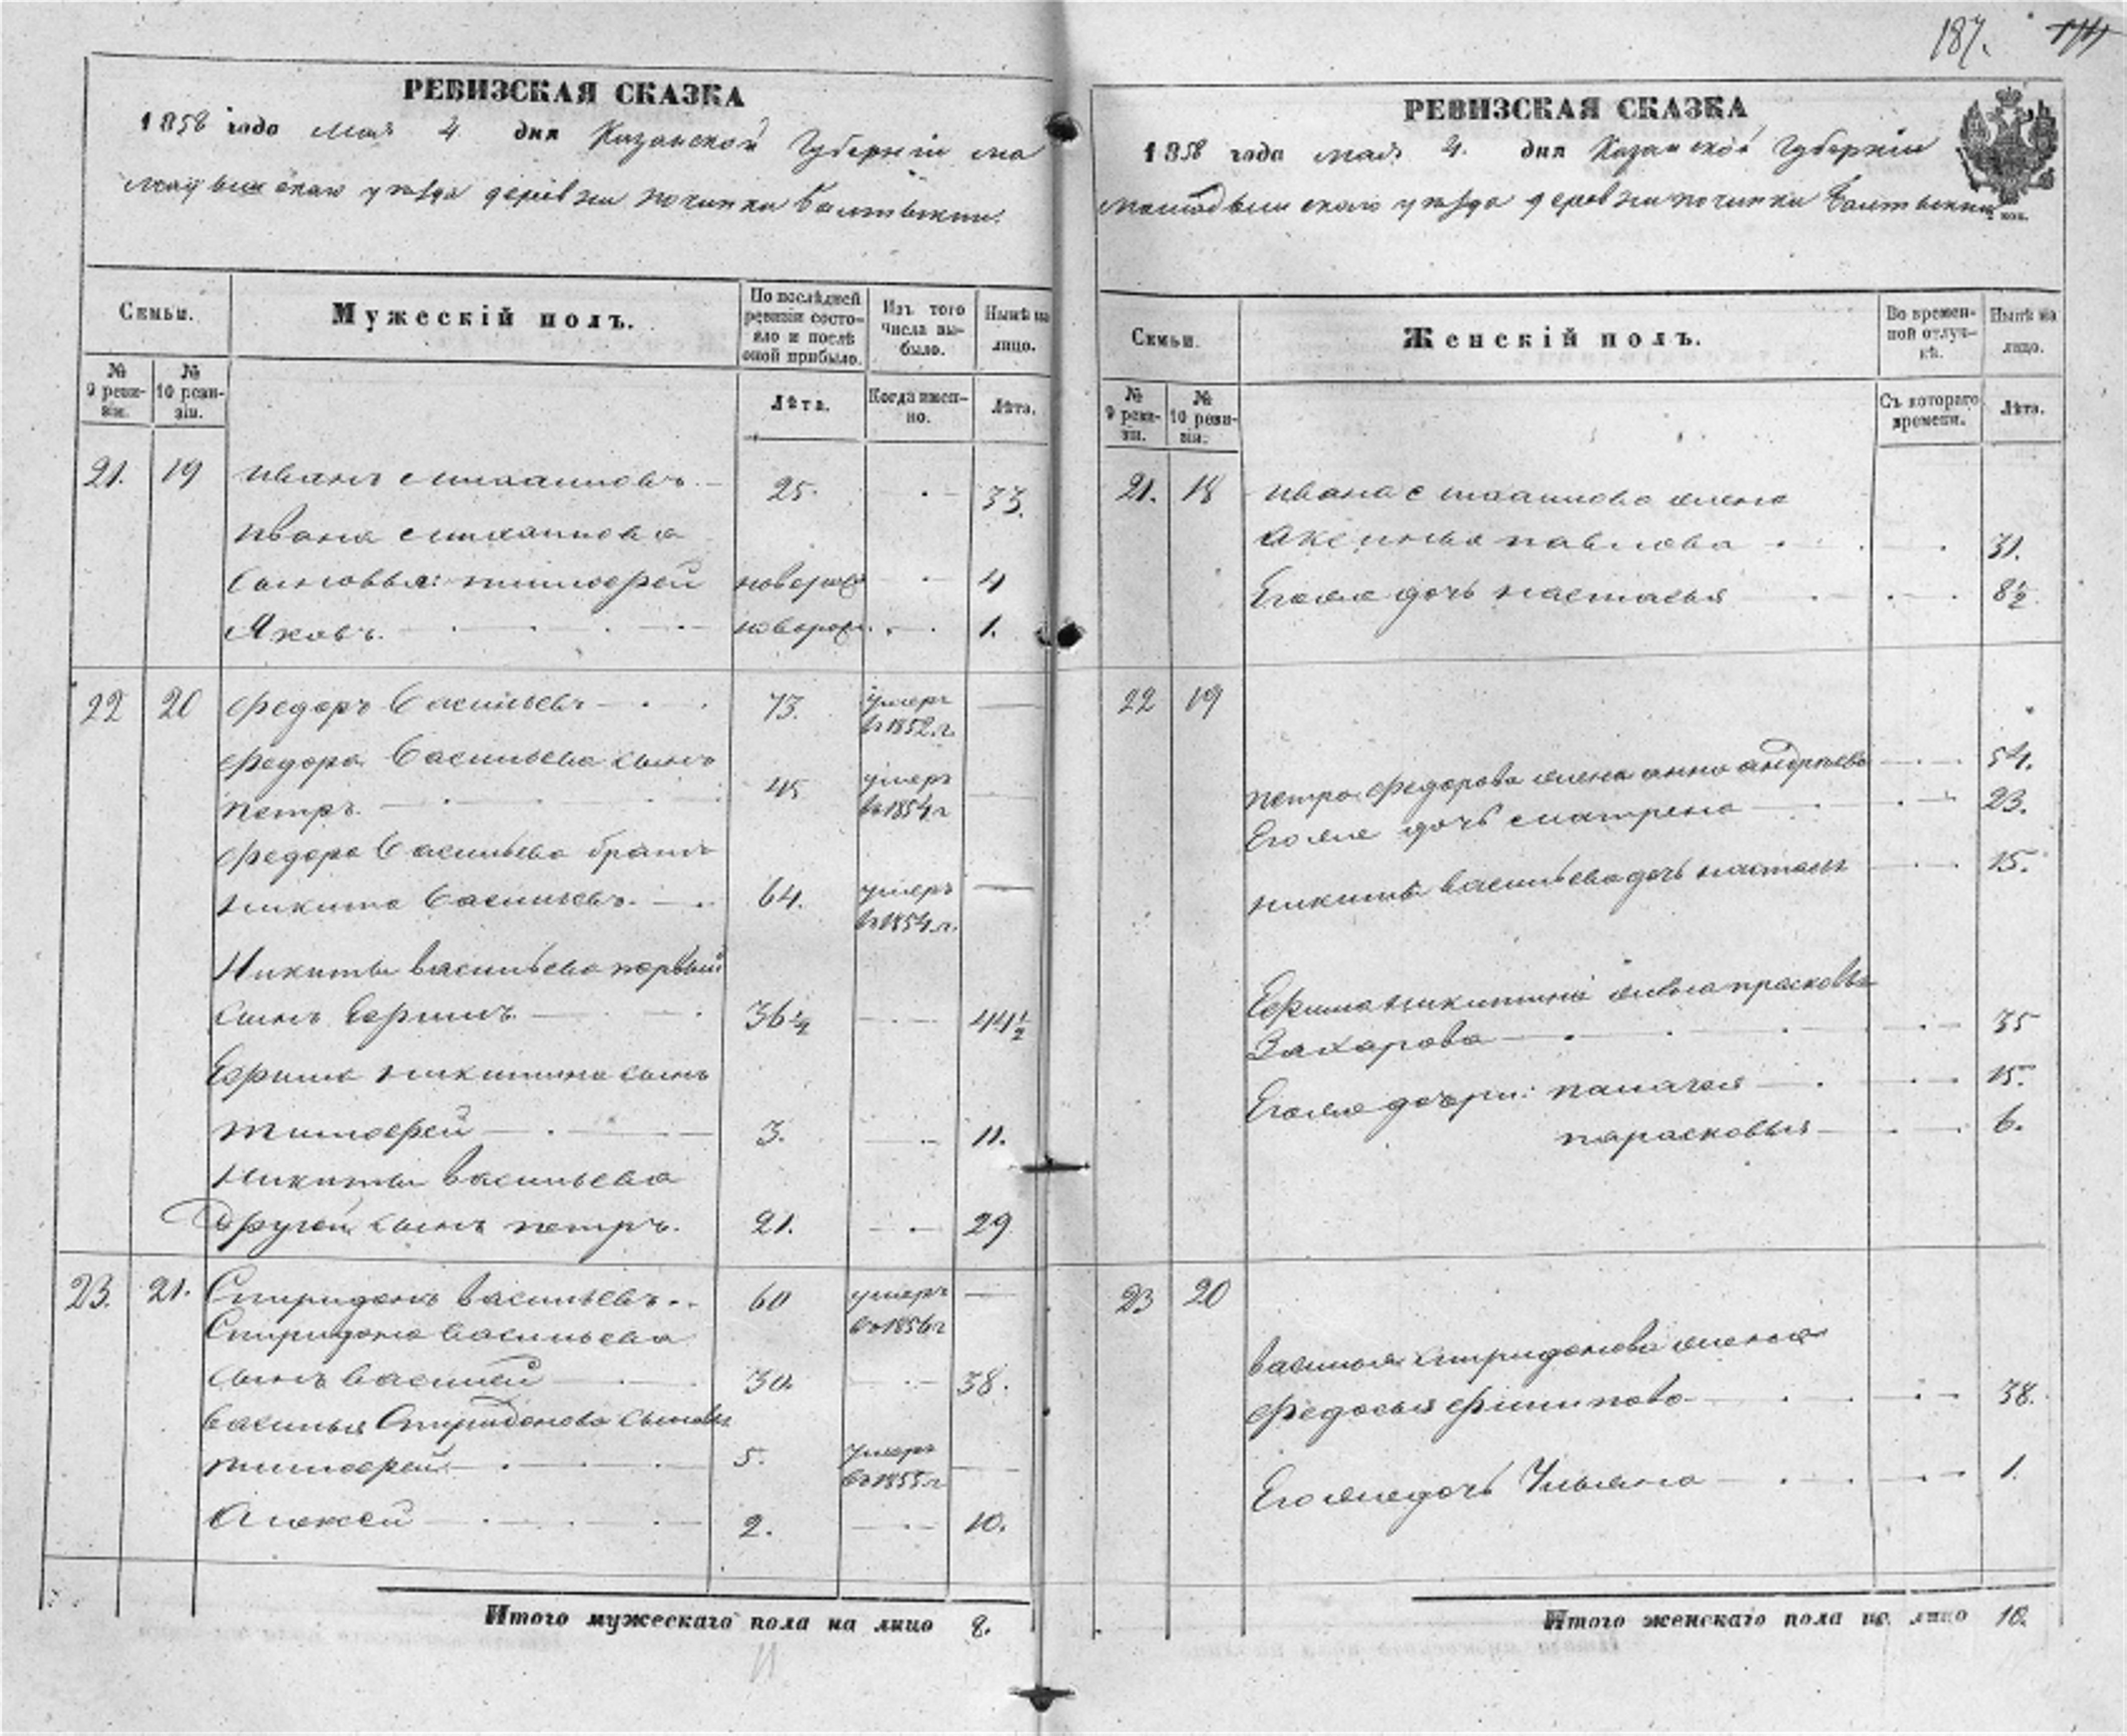 187.
РЕВИЗСКАЯ СКАЗКА
1858 года мая 4 дня Казанской Губерніи
уѣзда деревни починка
Семьи.
Мужескій полъ.
По послѣдней ревизіи состояло и послѣ оной прибыло.
Изъ того числа выбыло.
Нынѣ на лицо.
№ 9 ревизіи.
№ 10 ревизіи.
Лѣта.
Когда именно.
Лѣта.
21. 19 Иванъ 25. 33.
Ивана
сыновья: Тимофей новорож 4
Яковъ. новорож. 1.
22 20 Федоръ Васильевъ 73. умеръ
в 1852.г.
Федора Васильева сынъ
Петръ. 45 умеръ
въ 1854 г
Федора Васильева братъ
Никита Васильевъ. 64. умеръ
въ 1854.г.
Никиты Васильева первый
сынъ Ефимъ 36 1/2 44 1/2
Ефима Никитина сынъ
Тимофей 3. 11.
Никиты Васильева
другой сынъ Петръ. 21. 29
23. 21. Спиридонъ Васильевъ 60 умеръ
въ 1856 г
Спиридона Васильева
сынъ Василей 30. 38.
Василья Спиридонова сыновья
Тимофей 5. умеръ
въ 1855 г
Алексей 2. 10.
Итого мужескаго пола на лицо 8.
РЕВИЗСКАЯ СКАЗКА
1858 года мая 4. дня Казанской Губерніи
уѣзда деревни починка
Семьи.
Женскій полъ.
Во временной отлучкѣ.
Нынѣ на лицо.
№ 9 ревизіи.
№ 10 ревизіи.
Съ котораго времени.
Лѣта.
21. 18 Ивана жена
Аксинья Павлова 31.
Его же дочь Настасья 8 1/2
22 19
Петра Федорова жена Анна Андреева 54.
Его же дочь Матрена 23.
Никиты Васильева дочь Настасья 15.
Ефима Никитина жена Прасковья
Захарова 35
Его же дочери: Палагея 15.
Парасковья 6.
23 20
Василья Спиридонова жена
Федосья Филипова 38.
Его же дочь Ульяна 1.
Итого женскаго пола на лицо 10.